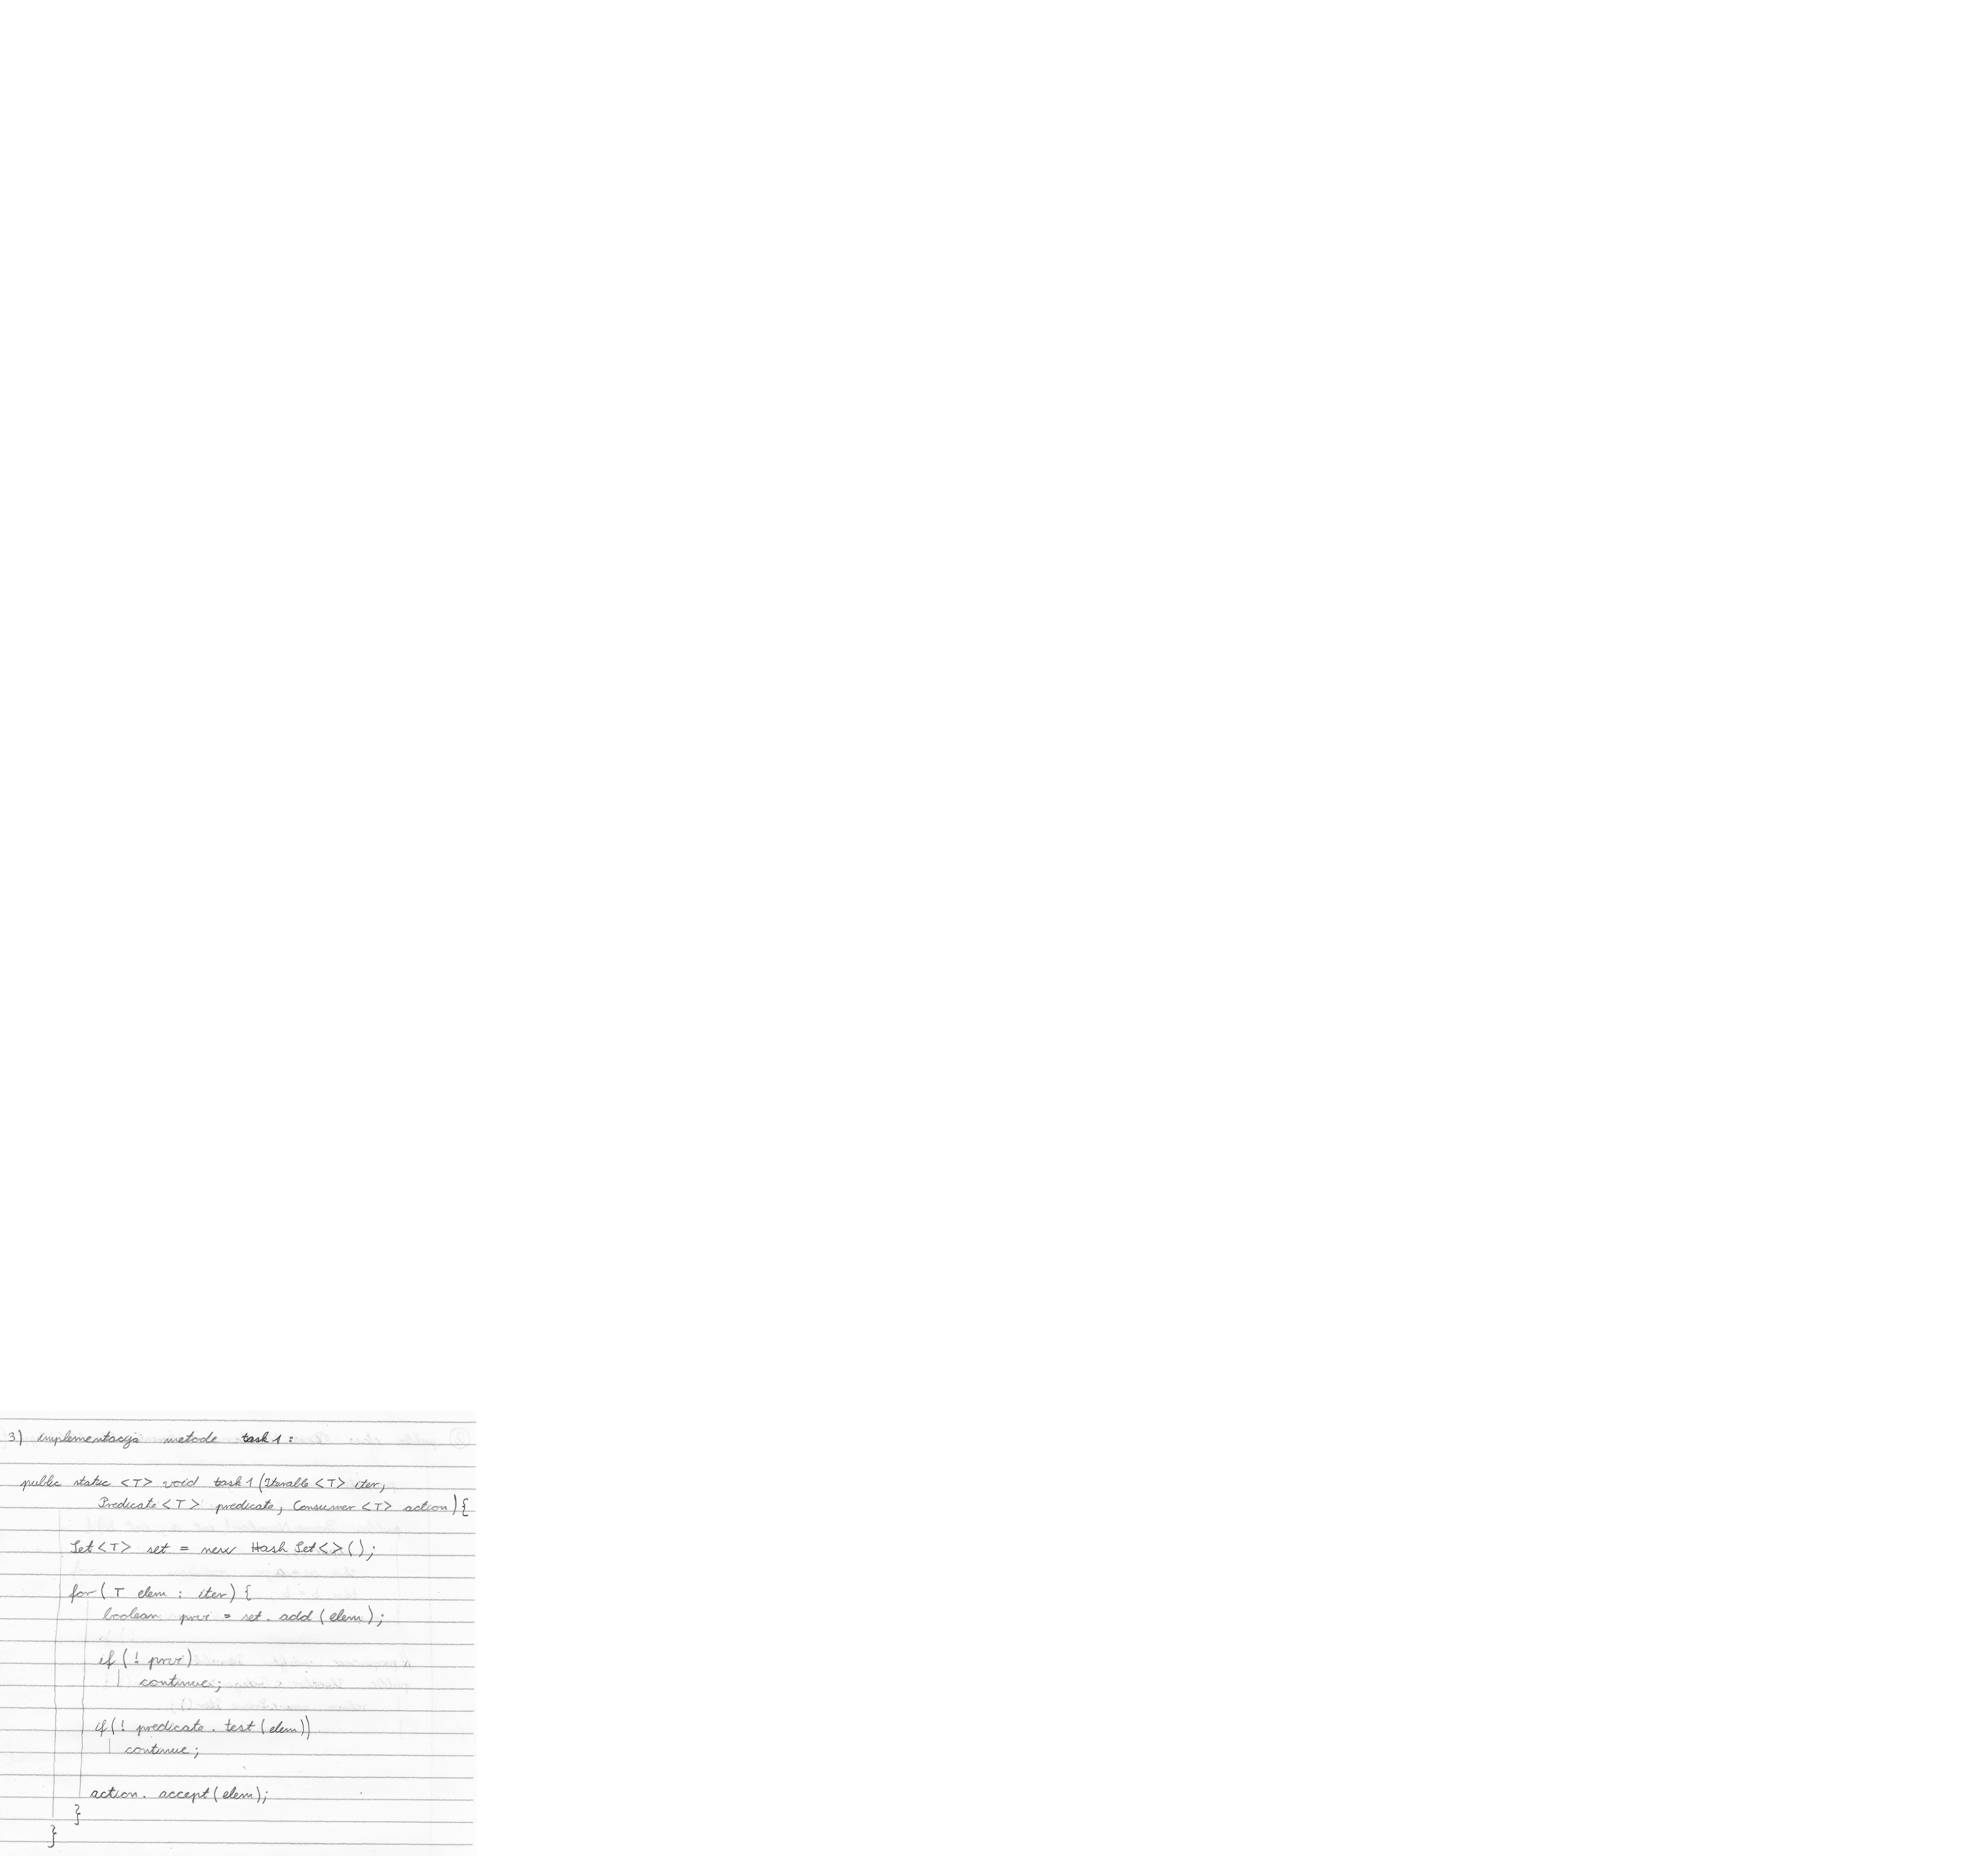 3) implementacija metode task1:
public static <T> void task1(Iterable<T> iter,
Predicate<T> predicate, Consumer<T> action){
Set<T> set = new HashSet<>();
for(T elem : iter){
boolean prvi = set.add(elem);
if(! prvi)
continue;
if(! predicate.test(elem))
continue;
action.accept(elem);
}
}